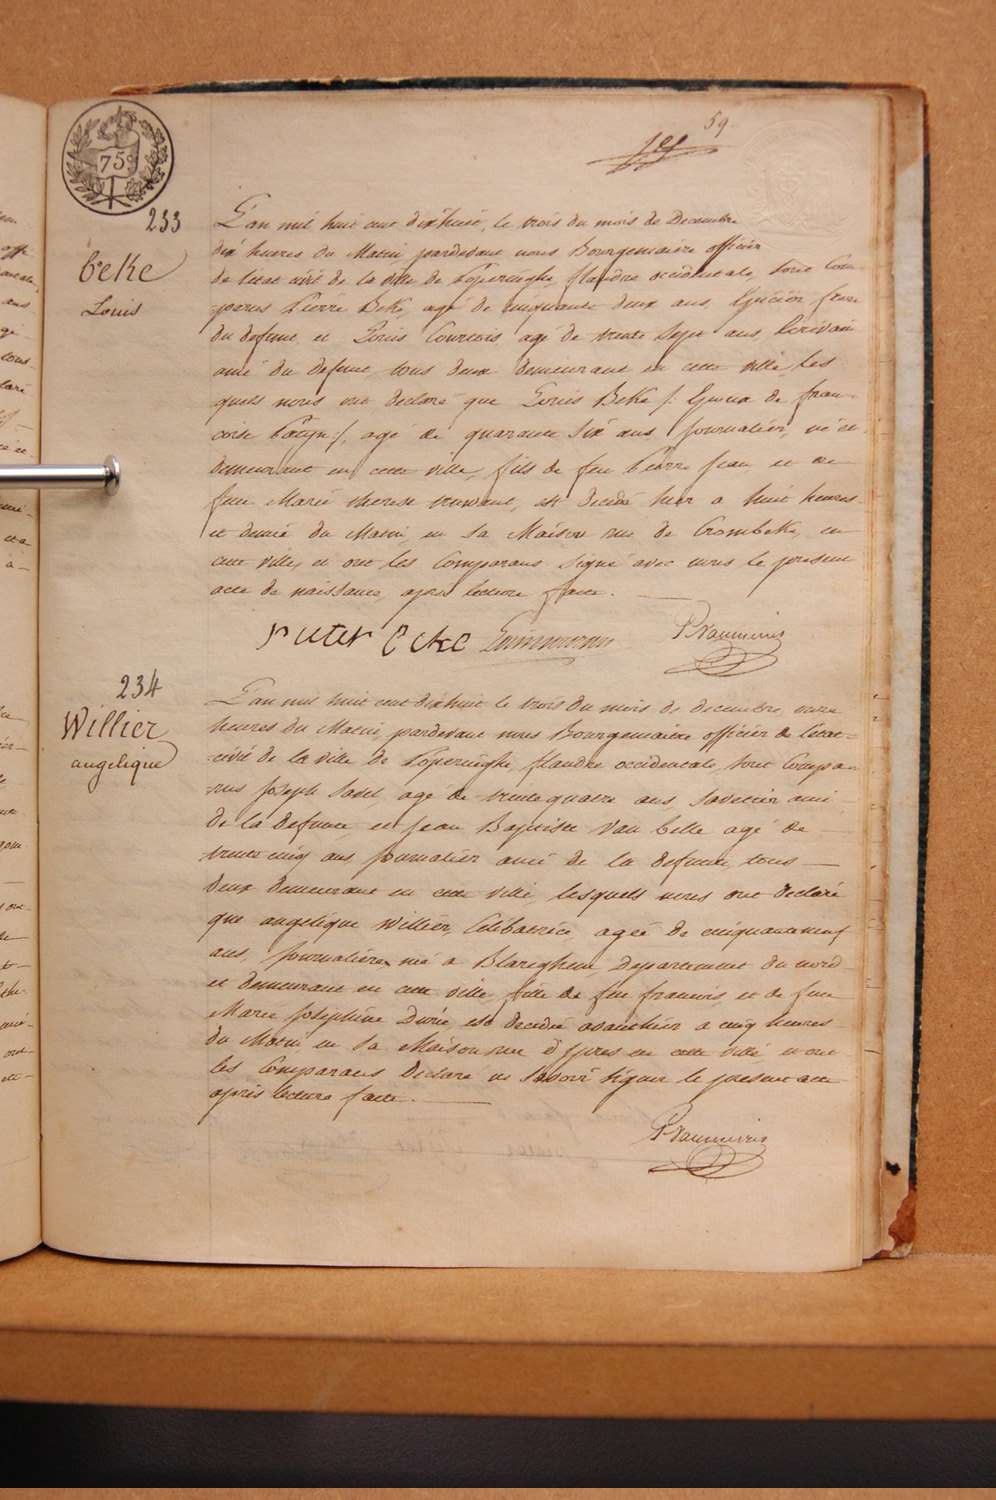 59
75
233
Beke
Louis
L'an mil huit cent dix huit, le trois du mois de Decembre
dix heures du Matin pardevant nous Bourgemaitre officier
de l'etat civil de la ville de Poperinghe, flandre occidentale, sont Com-
parus Pierre Beke, agé de cinquante deux ans, Epicier, frere
du defunt, et Louis Courtois agé de trente Sept ans, Ecrivain
ami du defunt, tous deux demeurant en cette ville, les
quels nous ont declaré que Louis Beke /: Epoux de fran-
coise :/, agé de quarante Six ans, journalier, né et
demeurant en cette ville, fils de feu Pierre Jean, et de
feue Marie therese, est decedé hier a huit heures
et demie du Matin, en sa Maison rue de Crombeke, en
cette ville, et ont les Comparans Signé avec nous le present
acte de naissance, apres lecture faite.
Pieter Beke
234
Willier
angelique
L'an mil huit cent dix huit le trois du mois de decembre, onze
heures du Matin, pardevant nous Bourgemaitre officier de l'etat-
civil de la ville de Poperinghe, flandre occidentale, sont Compa-
rus Joseph agé de trente quatre ans, Savetier ami
de la defunte, et Jean Baptiste Van belle agé de
trente cinq ans journalier ami de la defunte, tous
deux demeurant en cette ville, lesquels nous ont declaré
que angelique Willier, Celibatrice agée de cinquante neuf
ans, journaliere, né a Blareghem, Departement du nord
et demeurant en cette ville, fille de feu francois, et de feue
Marie Josephine Durie, est decedée avanthier a cinq heures
du Matin, en sa Maison rue d'Ypres en cette ville, et ont
les Comparans Declaré ne Savoir Signer le present acte
après lecture faite.